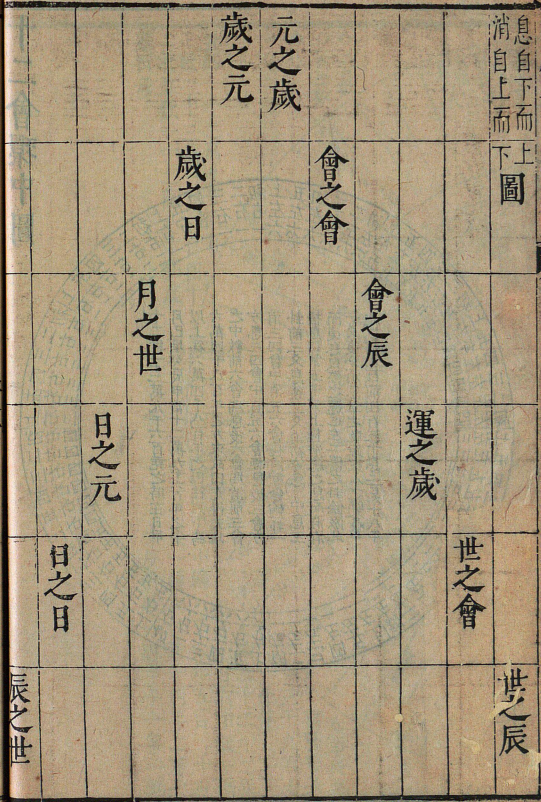 息自下而上
消自上而下
圖
世之辰
世之會
運之歲
會之辰
會之會
元之歲
歲之元
歲之日
月之世
日之元
日之日
辰之世